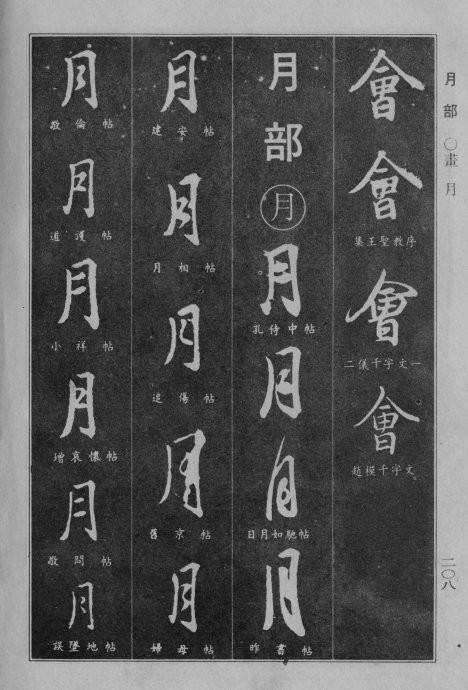 月部 〇畫 月
二〇八
會
會
集王聖教序
會
二儀千字文一
會
趙模千字文
月部
月
月
孔侍中帖
月
月
日月如馳帖
月
昨書帖
月
建安帖
月
月相帖
月
追傷帖
月
舊京帖
月
婦母帖
月
敬倫帖
月
道護帖
月
小祥帖
月
增哀懷帖
月
敬問帖
月
誤墜地帖